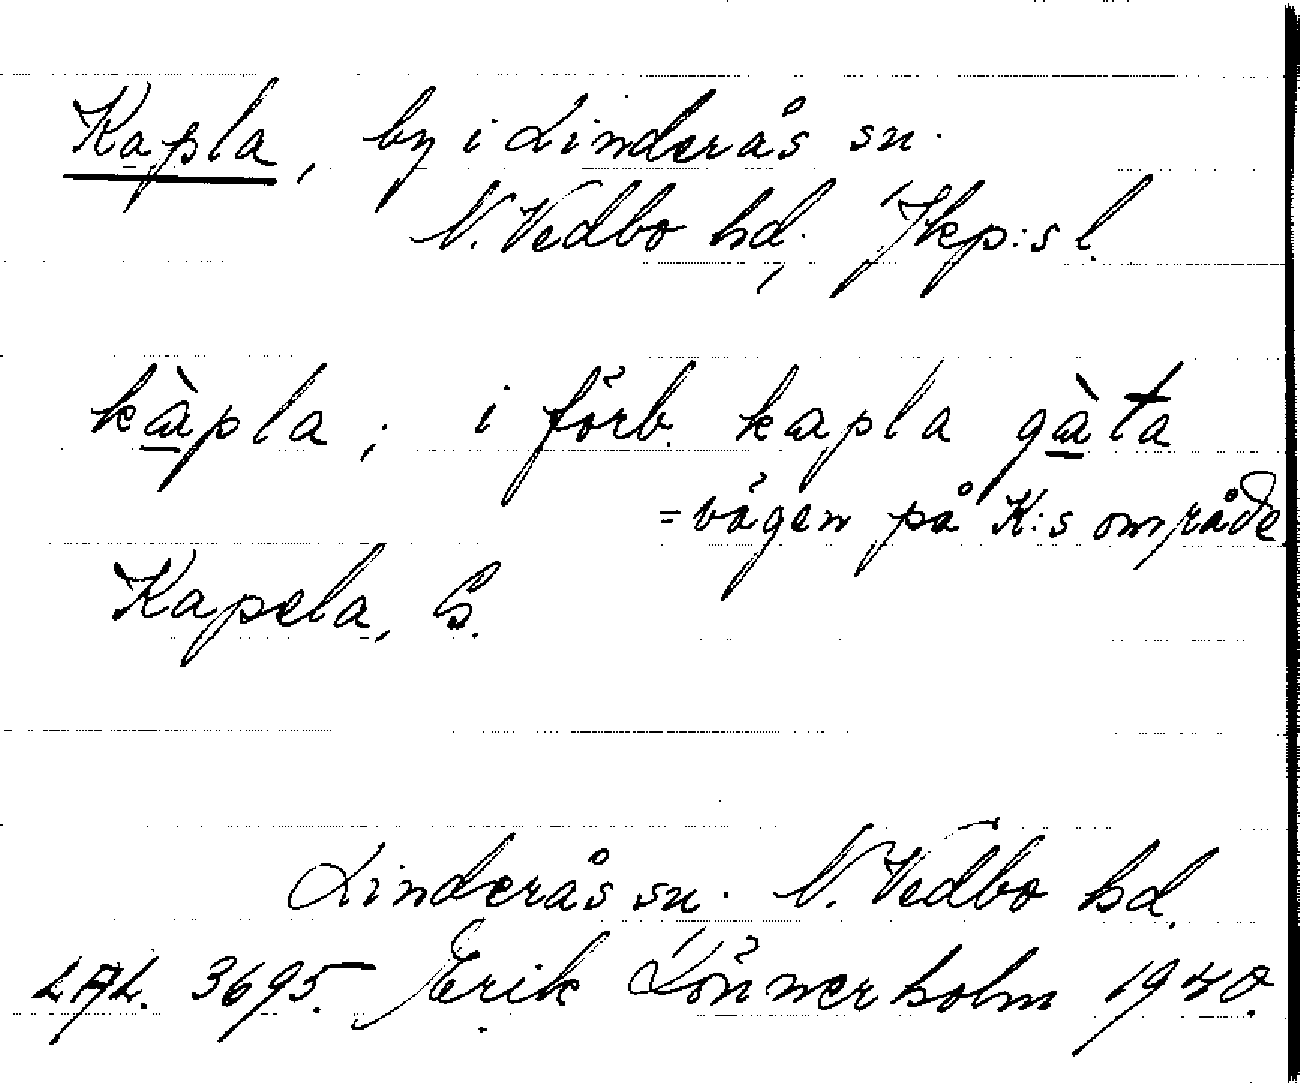 Kapla, by i Linderås sn.
N. Vedbo hd, Jkp:s l.
kàpla; i förb. kapla gàta
= vägen på K:s område.
Kapela, G.
Linderås sn. N. Vedbo hd.
LAL. 3695. Erik Lönnerholm 1940.